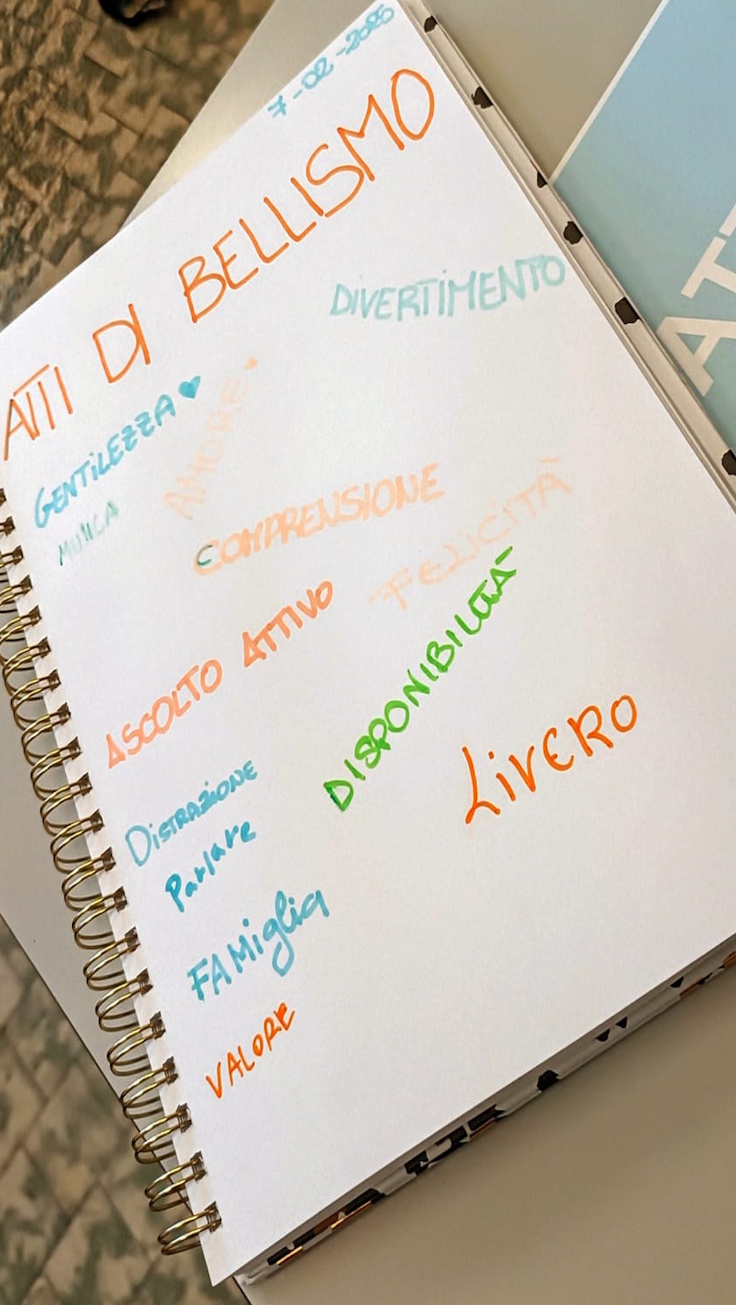 7-02-2025
ATTI DI BELLISMO
DIVERTIMENTO
GENTILEZZA
AMORE
MUSICA
COMPRENSIONE
FELICITÀ
ASCOLTO ATTIVO
DISPONIBILITÀ
LiVERO
DiSTRAZIONE
Parlare
FAMiglia
VALORE
AT